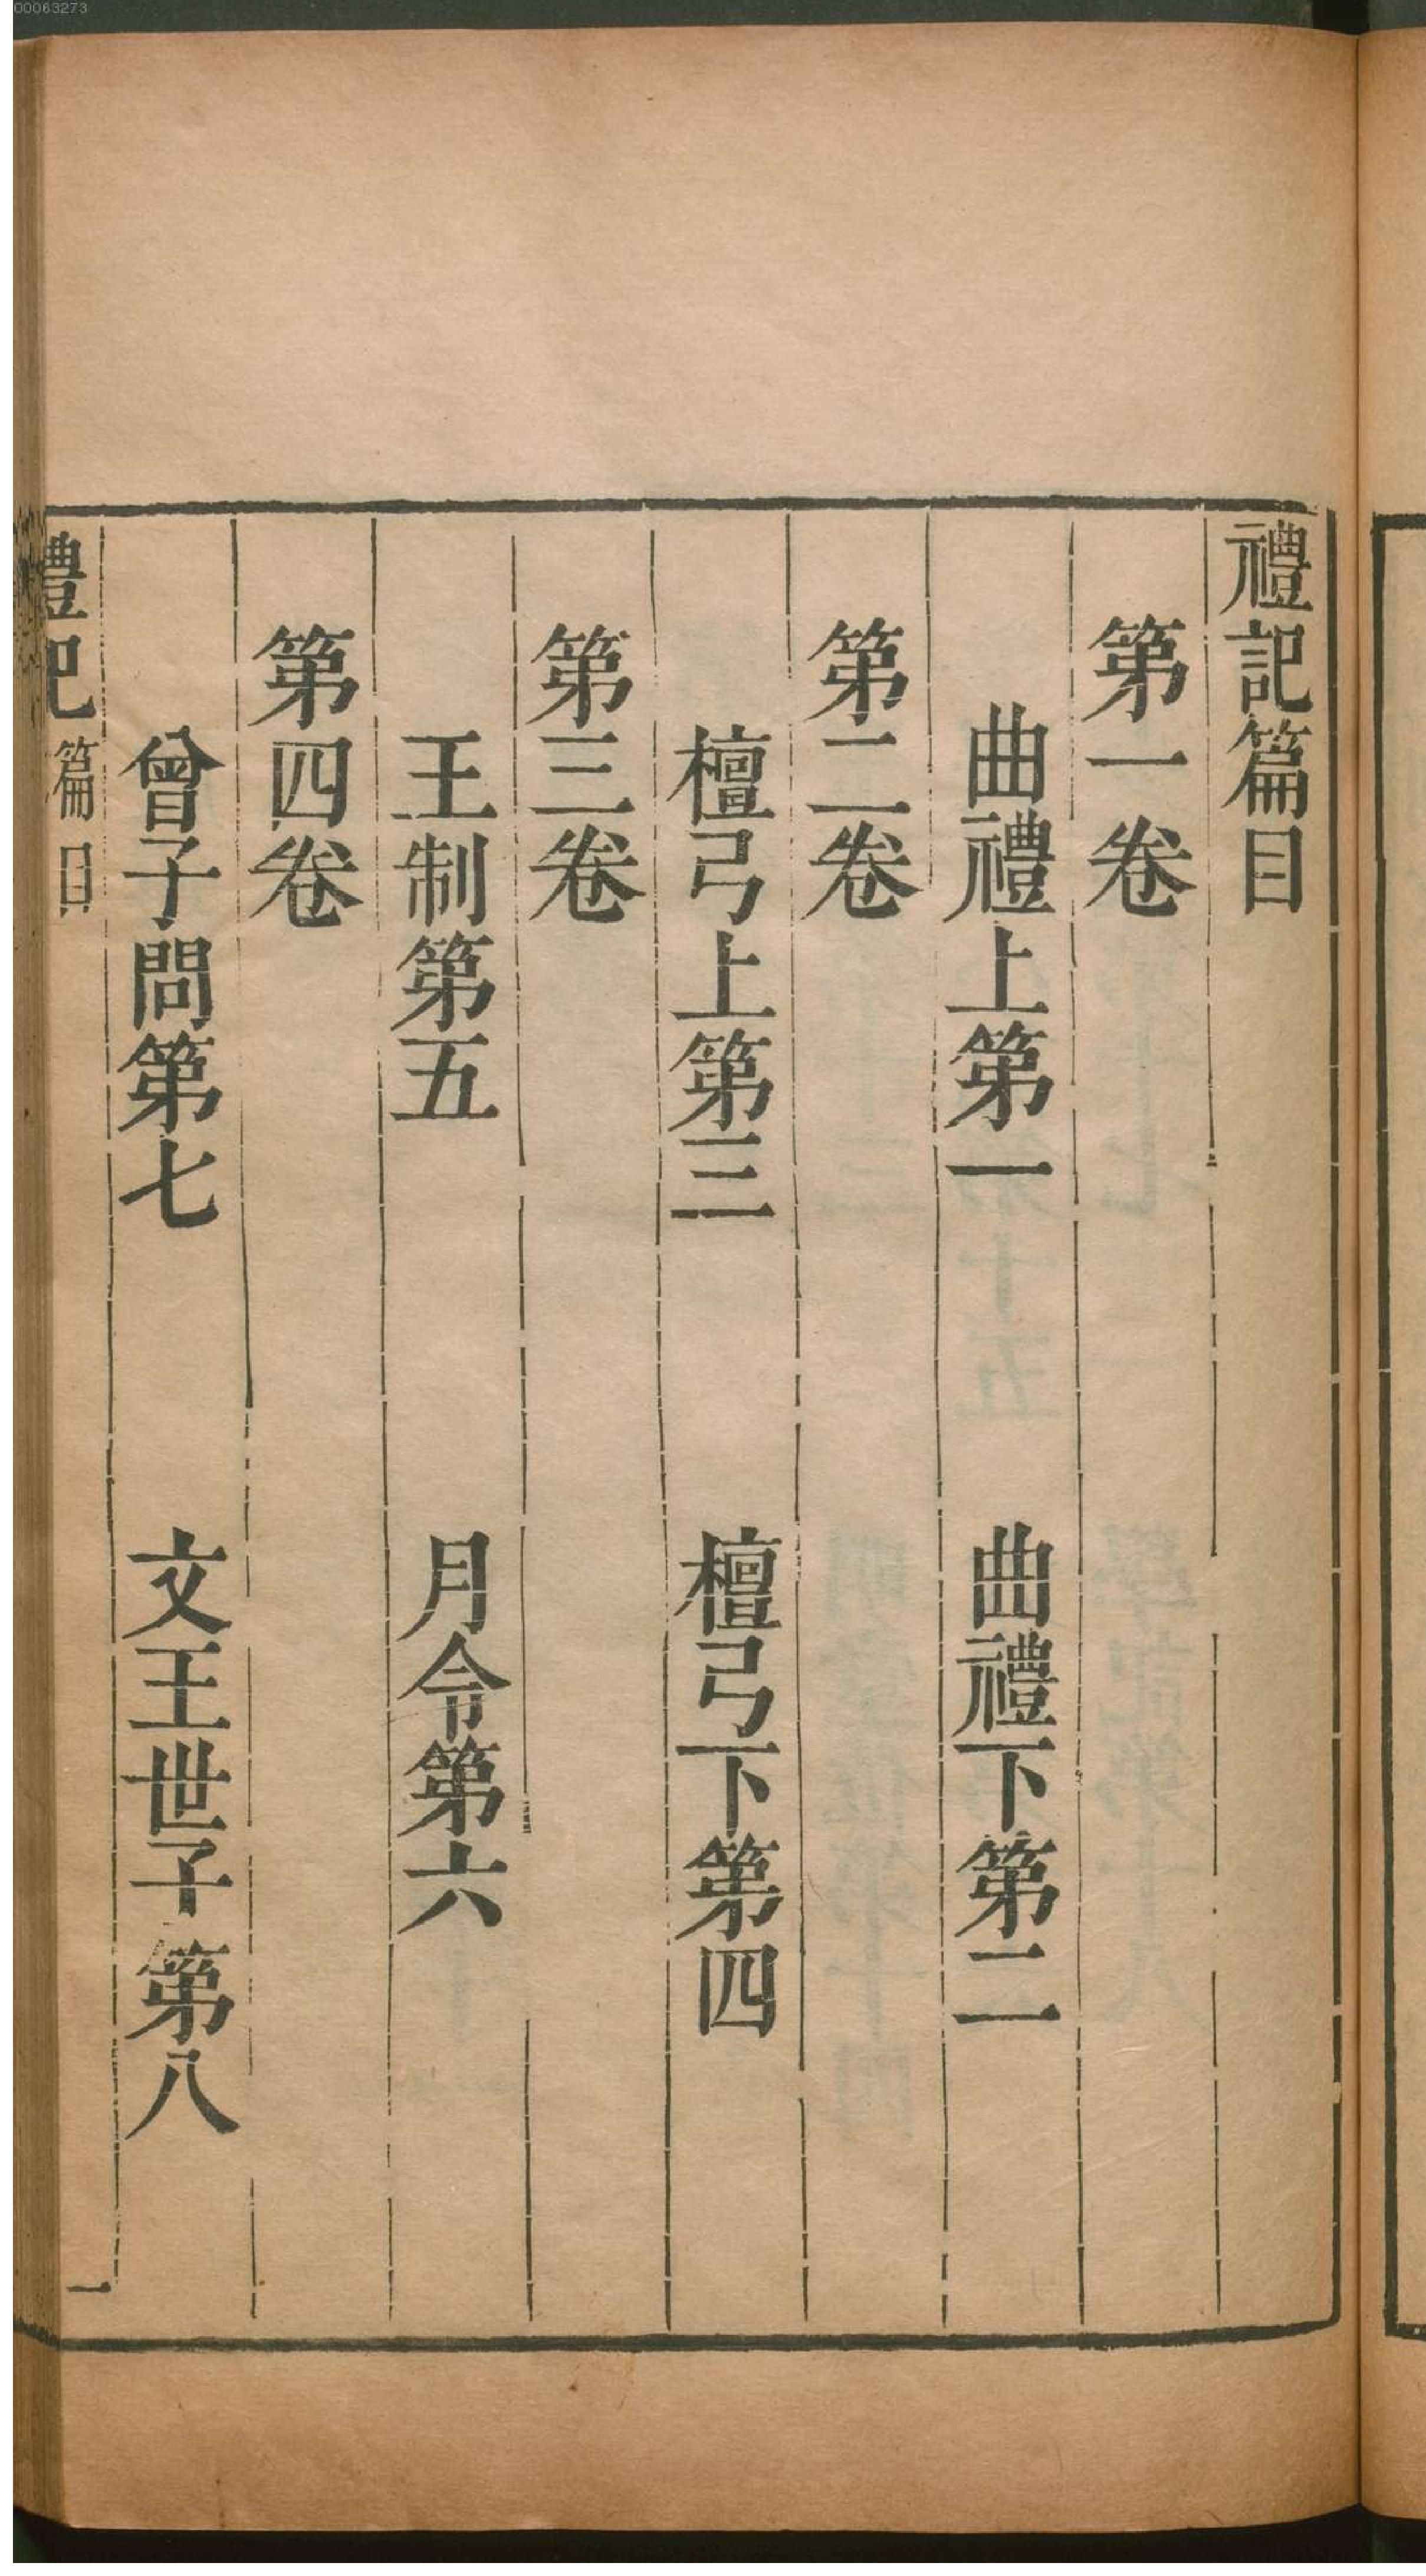 禮記篇目
第一卷
曲禮上第一　曲禮下第二
第二卷
檀弓上第三　檀弓下第四
第三卷
王制第五　月令第六
第四卷
曾子問第七　文王世子第八
禮記　篇目　一
00063273